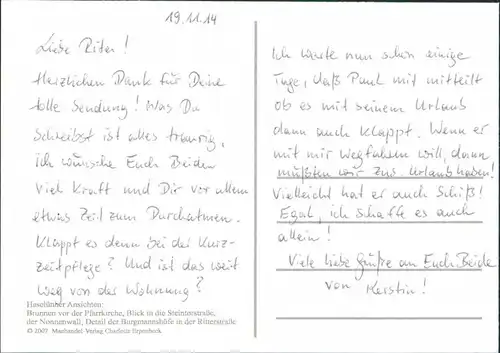 19.11.14
Liebe Rita!
Herzlichen Dank für Deine
tolle Sendung! Was Du
Schreibst ist alles traurig,
ich wünsche Euch Beiden
viel Kraft und Dir vor allem
etwas Zeit zum Durchatmen.
Klappt es denn bei der Kurz-
zeitpflege? Und ist das weit
weg von der Wohnung?
Haselünner Ansichten:
Brunnen vor der Pfarrkirche, Blick in die Steintorstraße,
der Nonnenwall, Detail der Burgmannshöfe in der Ritterstraße
© 2007 Maehandel Verlag Charlotte Erpenbeck
Ich warte nun schon einige
Tage, daß Paul mit mitteilt
ob es mit seinem Urlaub
dann auch klappt. Wenn er
mit mir wegfahren will, dann
müßten wir zus. Urlaub haben!
Vielleicht hat er auch Schiß!
Egal, ich schaffe es auch
allein!
Viele liebe Grüße an Euch Beide
von Kerstin!